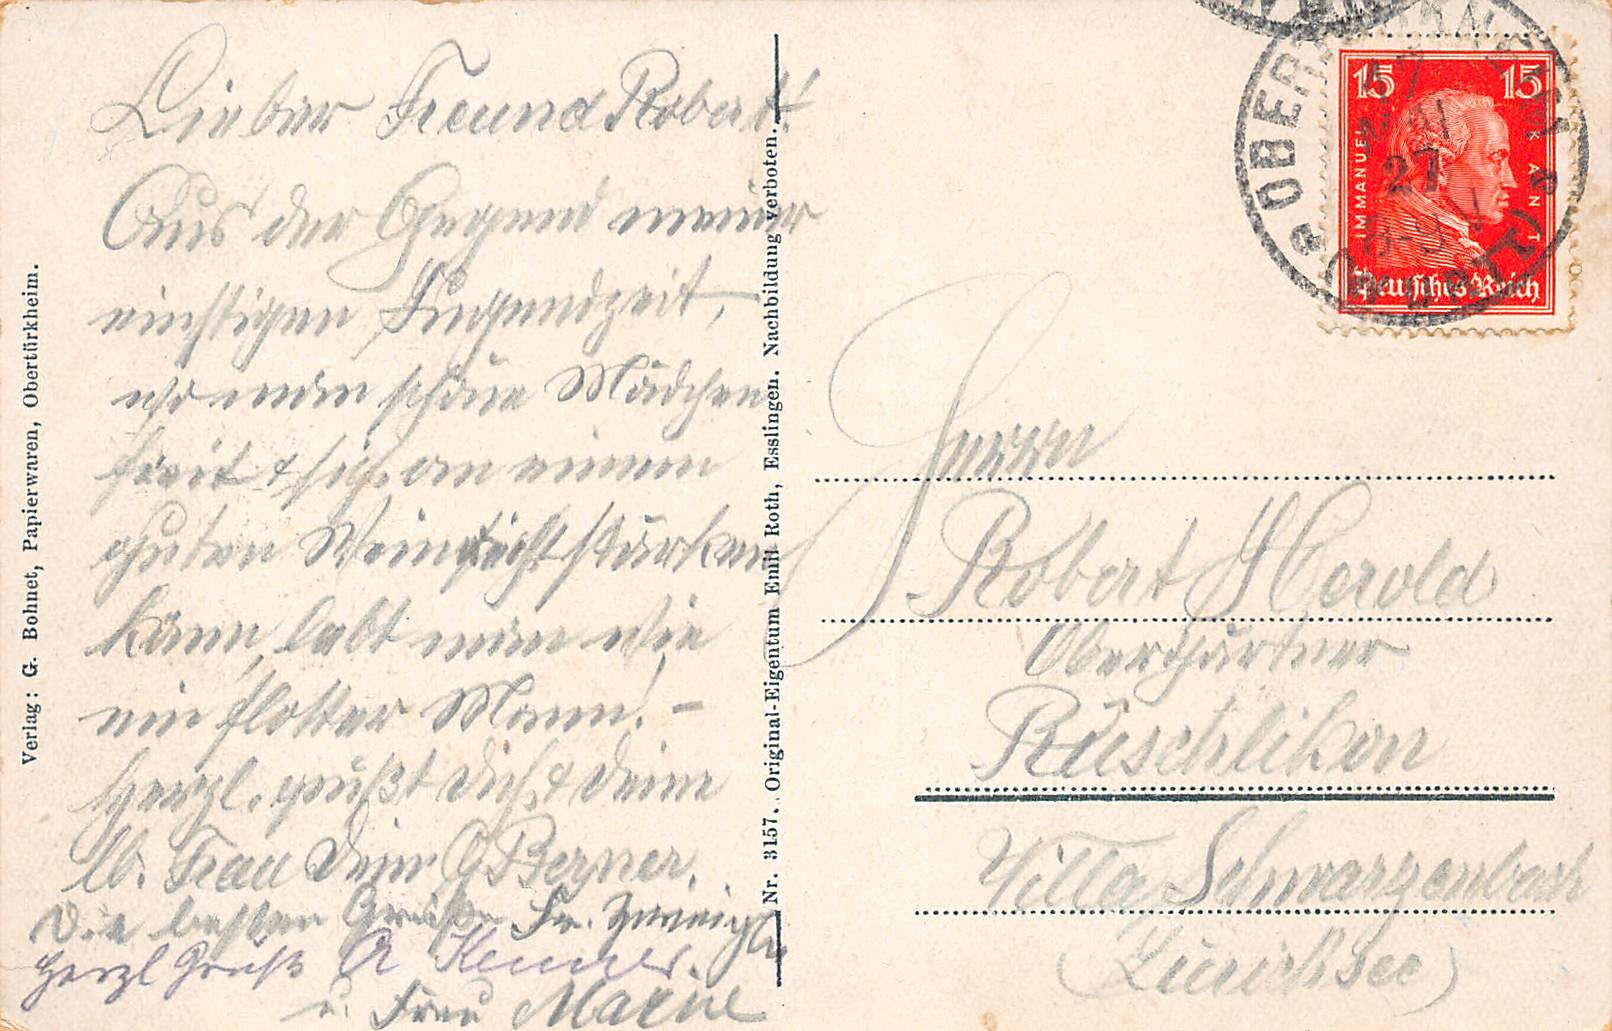 Lieber Freund Robert!
Aus der Gegend meiner
einstigen Jugendzeit,
wo man schöne Mädchen
freit & sich an einem
guten Wein stärken
kann, labt man wie
ein flotter Mann! –
Herzl. grüßt Dich & Deine
lb. Frau Dein G Berner.
Die besten Grüße Fr.
Herzl Gruß
u. Frau
Verlag: G. Bohnet, Papierwaren, Obertürkheim.
Nr. 3157. Original-Eigentum Emil Roth, Esslingen. Nachbildung verboten.
OBERTÜRKHEIM
17
MAI
27
8-9 V
15 15
IMMANUEL KANT
Deutsches Reich
Herrn
Robert Herold
Obergärtner
Rüschlikon
Villa Schwarzenbach
(Zürichsee)